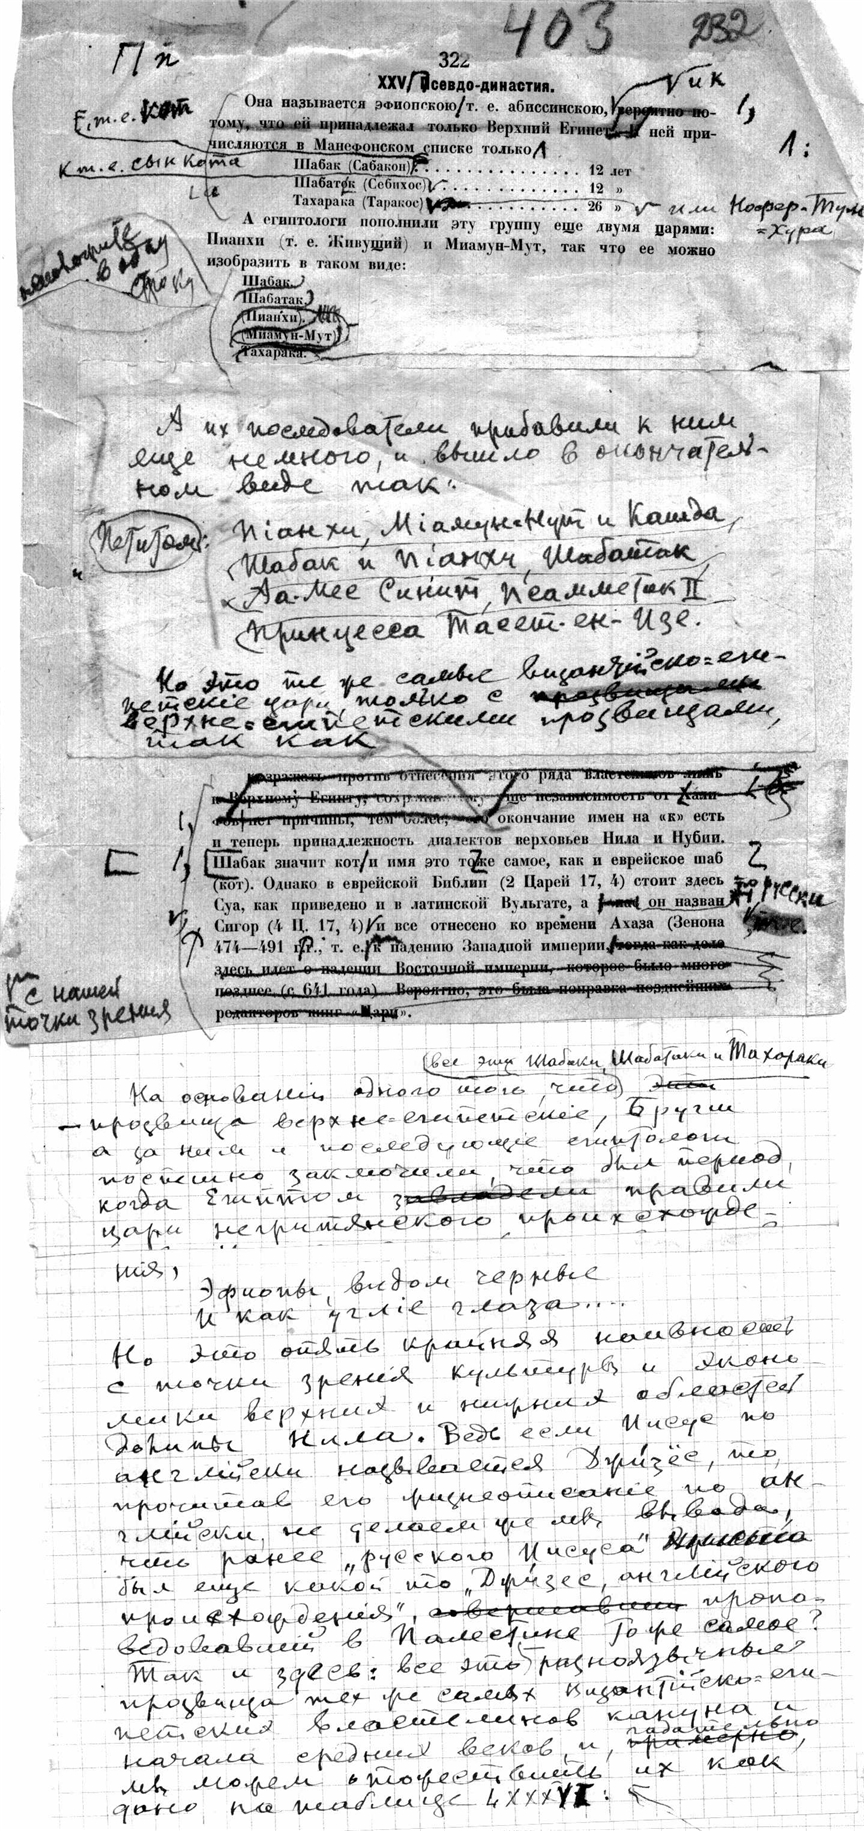 403 232
322
П п
XXV Псевдо-династия.
Она называется эфиопскою, т. е. абиссинскою, вероятно по-
тому, что ей принадлежал только Верхний Египет. К ней при-
числяются в Манефонском списке только
Шабак (Сабакон) . . . . . . . . . . . . . . . 12 лет
Шабаток (Себихос) . . . . . . . . . . . . . . 12 »
Тахарака (Таракос) . . . . . . . . . . . . 26 »
или Нофер-Тум
=Хура
т. е. кот
т. е. сын кота
А египтологи пополнили эту группу еще двумя царями:
Пианхи (т. е. Живущий) и Миамун-Мут, так что ее можно
изобразить в таком виде:
в одну
строку
Шабак.
Шабатак,
(Пианхи).
(Миамун-Мут)
Тахарака.
А их последователи прибавили к ним
еще немного, и вышло в окончатель-
ном виде так:
Петитом:
Піанхи, Міамун-Нут и Кашда,
Шабак и Піанхи, Шабатак
Аа-Мес Синит, Псамметик II
Принцесса Тасет-ен-Изе.
Но это те же самые византійско-еги-
петскіе цари, только с прозвищами
верхне-египетскими прозвищами,
так как
возражать против отнесения этого ряда властелинов лишь
к Верхнему Египту, еще независимость от
нет причины, тем более, что окончание имен на «к» есть
и теперь принадлежность диалектов верховьев Нила и Нубии.
Шабак значит кот и имя это тоже самое, как и еврейское шаб
(кот). Однако в еврейской Библии (2 Царей 17, 4) стоит здесь
Суа, как приведено и в латинской Вульгате, а он назван
по русски
Сигор (4 Ц. 17, 4) и все отнесено ко времени Ахаза (Зенона
474—491 гг., т. е. к падению Западной империи, тогда как дело
здесь идет о падении Восточной империи, которое было много
позднее (с 641 года). Вероятно, это была поправка позднейших
редакторов книг «Цари».
с нашей
точки зрения
все эти Шабаки, Шабатаки и Тахараки
На основаніи одного того, что эти
прозвища верхне-египетскіе, Бругш
а за ним и последующіе египтологи
поспешно заключили, что был період,
когда Египтом завладели правили
цари негритянского происхожде-
нія,
Эфиопы, видом черные
И как угліе глаза....
Но это опять крайняя наивность
с точки зренія культуры и эконо-
мики верхних и нижних областей
долины Нила. Ведь если Иисус по
англійски называется Джизёс, то,
прочитав его жизнеописаніе по ан-
глійски, не делаем же мы вывода,
что ранее „русского Иисуса"
был еще какой то „Джизес, англійского
происхожденія", совершавший пропо-
ведовавшій в Палестине то же самое?
Так и здесь: все это разноязычные
прозвища тех же самых византійско-еги-
петских властелинов кануна и
начала средних веков, и, гадательно
примерно,
мы можем отожествить их как
дано на таблице LXXXVI: